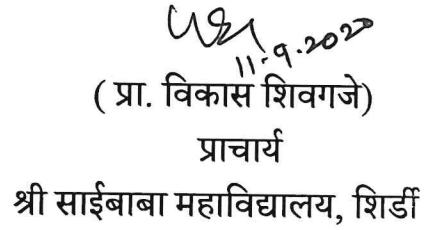 11-9-2020
( प्रा. विकास शिवगजे)
प्राचार्य
श्री साईबाबा महाविद्यालय, शिर्डी